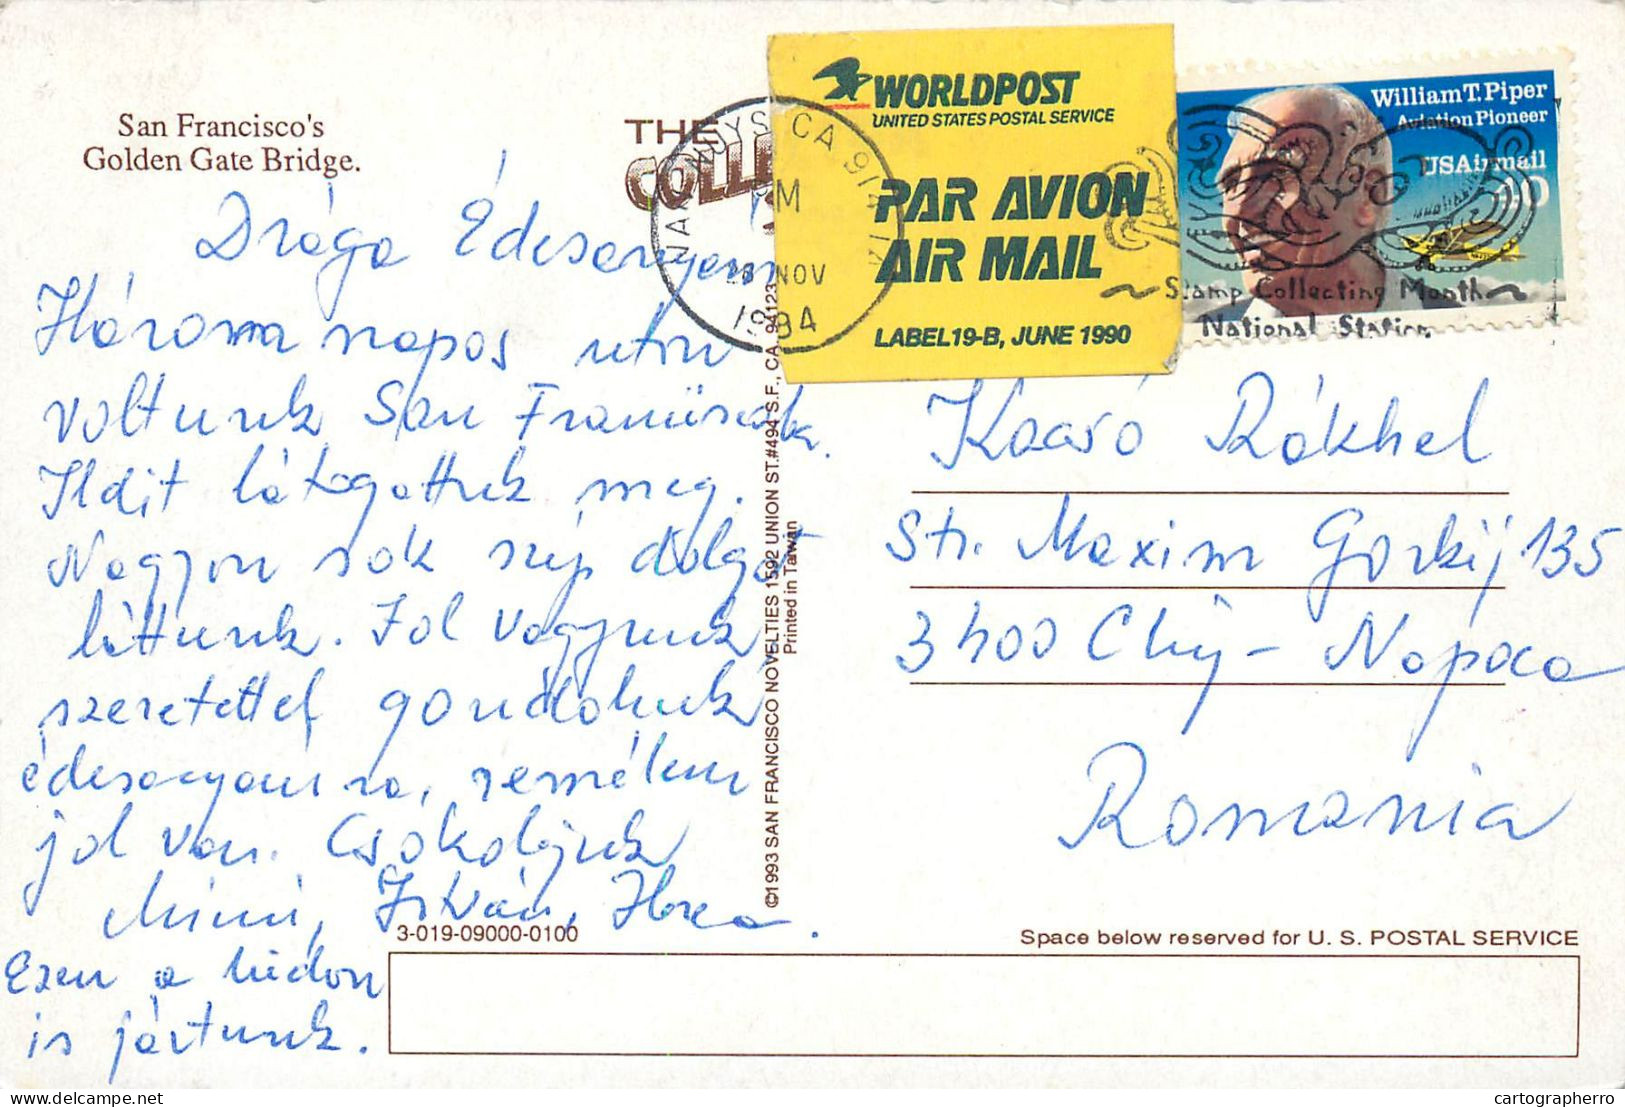 San Francisco's
Golden Gate Bridge.
THE
WORLDPOST
UNITED STATES POSTAL SERVICE
PAR AVION
AIR MAIL
LABEL 19-B, JUNE 1990
VAN NUYS CA 914
28 NOV
1994
William T. Piper
Aviation Pioneer
USAirmail
40
Stamp Collecting Month
National Station
Drága Édesanyám
Három napos úton
voltunk San Franciscoba.
Ildit látogattuk meg.
Nagyon sok szép dolgot
láttunk. Jol vagyunk
szeretettel gondolunk
édesanyámra, remélem
jol van. Csókoljuk
István,
Ezen a hídon
is jártunk.
©1993 SAN FRANCISCO NOVELTIES 1592 UNION ST.#494 S.F., CA. 94123
Printed in Taiwan
Rákhel
Str. Maxim Gorkij 135
3400 Cluj-Napoca
Romania
3-019-09000-0100
Space below reserved for U. S. POSTAL SERVICE
cartographerro